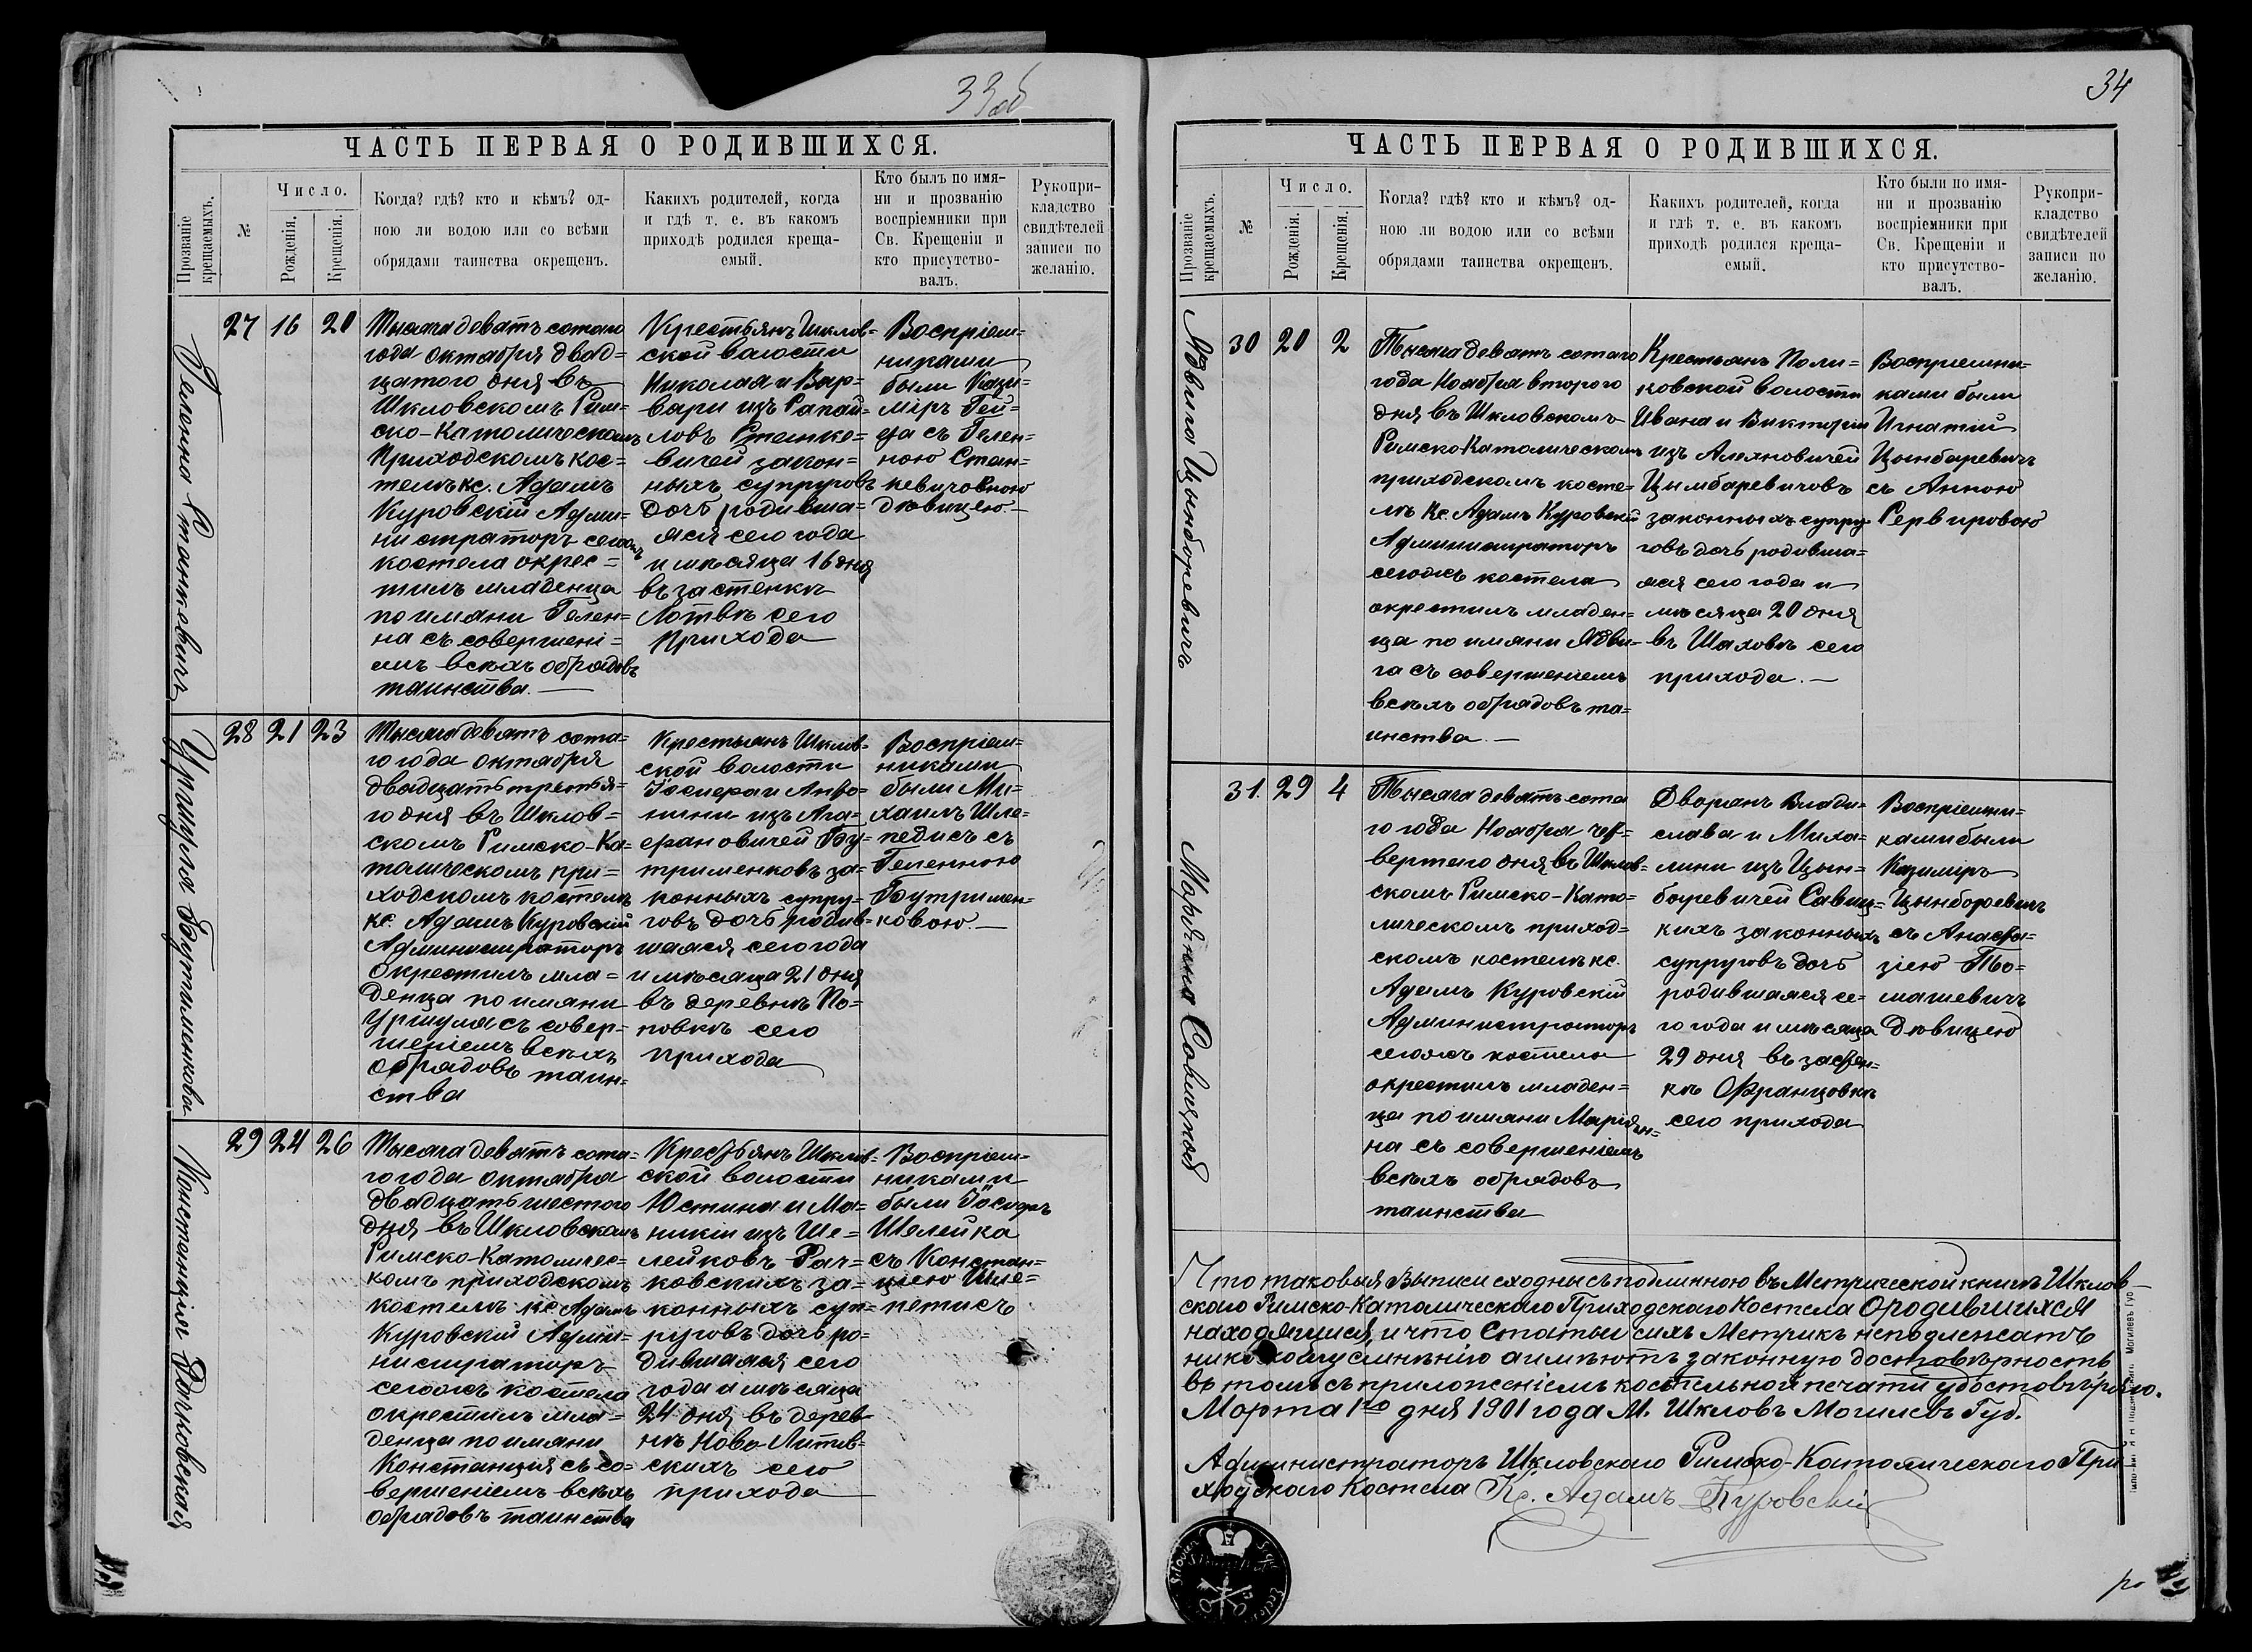 33об
ЧАСТЬ ПЕРВАЯ О РОДИВШИХСЯ.
Прозваніе крещаемыхъ.
№
Число.
Рожденія.
Крещенія.
Когда? гдѣ? кто и кѣмъ? од-
ною ли водою или со всѣми
обрядами таинства окрещенъ.
Какихъ родителей, когда
и гдѣ т. е. въ какомъ
приходѣ родился креща-
емый.
Кто былъ по имя-
ни и прозванію
воспріемники при
Св. Крещеніи и
кто присутство-
валъ.
Рукопри-
кладство
свидѣтелей
записи по
желанію.
Геленна Станкевичъ
27 16 20
Тысяча девятъ сотаго
года октября двад=
цатого дня въ
Шкловскомъ Рим=
ско-Католическомъ
Приходскомъ кос=
телѣ кс. Адамъ
Куровскій Адми=
нистраторъ сегожъ
костела окрес=
тилъ младенца
по имяни Гелен=
на съ совершені=
емъ всѣхъ обрядовъ
таинства.—
Крестьянъ Шклов=
ской волости
Николая и Вар=
вари изъ Рапай=
ловъ Станке=
вичей закон=
ныхъ супруговъ
дочь родивша=
яся сего года
и мѣсяца 16 дня
въ застенкѣ
Лотвѣ сего
прихода
Воспріем=
никами
были Кази=
міръ Гей=
са съ Гелен=
ною Стан=
кевичовною
дѣвицею.—
Уршуля Бутрименкова
28 21 23
Тысяча девятъ сота=
го года октября
двадцать третья=
го дня въ Шклов=
скомъ Римско-Ка=
толическомъ при=
ходскомъ костелѣ
кс. Адамъ Куровскій
Администраторъ
окрестилъ мла=
денца по имяни
Уршуля съ совер=
шеніемъ всѣхъ
обрядовъ таин=
ства
Крестьянъ Шклов=
ской волости
Іосифа и Анто=
нини изъ Ага=
фановичей Бу=
трименковъ за=
конныхъ супру=
говъ дочь родив=
шаяся сего года
и мѣсяца 21 дня
въ деревнѣ По=
повкѣ сего
прихода
Воспріем=
никами
были Ми=
хаилъ Шле=
педисъ съ
Геленною
Бутримен=
ковою.—
Констенція Рачковская
29 24 26
Тысяча девятъ сота=
го года октября
двадцать шестого
дня въ Шкловскомъ
Римско-Католичес=
комъ приходскомъ
костелѣ кс Адамъ
Куровскій Адми=
нистраторъ
сегожъ костела
окрестилъ мла=
денца по имяни
Констанція съ со=
вершеніемъ всѣхъ
обрядовъ таинства
Крестьянъ Шклов=
ской волости
Юстина и Мо=
никіи изъ Ше=
лейковъ Рач=
ковскихъ за=
конныхъ суп=
руговъ дочь ро=
дившаяся сего
года и мѣсяца
24 дня въ дерев=
нѣ Ново-Литов=
скихъ сего
прихода
Воспріем=
никами
были Іосифъ
Шелейка
съ Констан=
цією Шле=
петисъ
34
ЧАСТЬ ПЕРВАЯ О РОДИВШИХСЯ.
Прозваніе крещаемыхъ.
№
Число.
Рожденія.
Крещенія.
Когда? гдѣ? кто и кѣмъ? од-
ною ли водою или со всѣми
обрядами таинства окрещенъ.
Какихъ родителей, когда
и гдѣ т. е. въ какомъ
приходѣ родился креща-
емый.
Кто были по имя-
ни и прозванію
воспріемники при
Св. Крещеніи и
кто присутство-
валъ.
Рукопри-
кладство
свидѣтелей
записи по
желанію.
Ядвига Цынборевичъ
30 20 2
Тысяча девятъ сотаго
года Ноября второго
дня въ Шкловскомъ
Римско-Католическомъ
приходскомъ косте=
лѣ Кс. Адамъ Куровскій
Администраторъ
сегожъ костела
окрестилъ младен=
ца по имяни Ядви=
га съ совершеніемъ
всѣхъ обрядовъ та=
инства.—
Крестьянъ Поли=
ковской волости
Ивана и Викторіи
изъ Аляхновичей
Цымбаревичовъ
законныхъ супру
говъ дочь родивша=
яся сего года и
мѣсяца 20 дня
въ Шаховѣ сего
прихода.—
Воспріемни=
ками были
Игнатій
Цынбаревичъ
съ Анною
Рервировою
Марянна Савицкая
31. 29 4
Тысяча девятъ сота
го года Ноября чет=
вертаго дня въ Шклов=
скомъ Римско-Като=
лическомъ приход=
скомъ костелѣ кс.
Адамъ Куровскій
Администраторъ
сегожъ костела
окрестилъ младен=
ца по имяни Маріян=
на съ совершеніемъ
всѣхъ обрядовъ
таинства
Дворянъ Влади=
слава и Миха=
лини изъ Цын=
боревичей Савиц=
кихъ законныхъ
супруговъ дочь
родившаяся се=
го года и мѣсяца
29 дня въ застѣн=
кѣ Францовкѣ
сего прихода
Воспріемни=
ками были
Казиміръ
Цынборевичъ
съ Анаста=
зіею То=
машевичъ
дѣвицею
Что таковыя Выписи сходны съ подлинною въ Метрической книгѣ Шклов
скаго Римско-Католическаго Приходскаго Костела О родившихся
находящимися, и что Статьи сихъ Метрикъ неподлежатъ
никакому сомнѣнію а имѣютъ законную достовѣрность,
въ томъ съ приложеніемъ костельной печати удостовѣряю.
Марта 1го дня 1901 года М. Шкловъ Могилевъ Губ.
Администраторъ Шкловскаго Римско-Католическаго При
ходскаго Костела Кс. Адамъ Куровскій